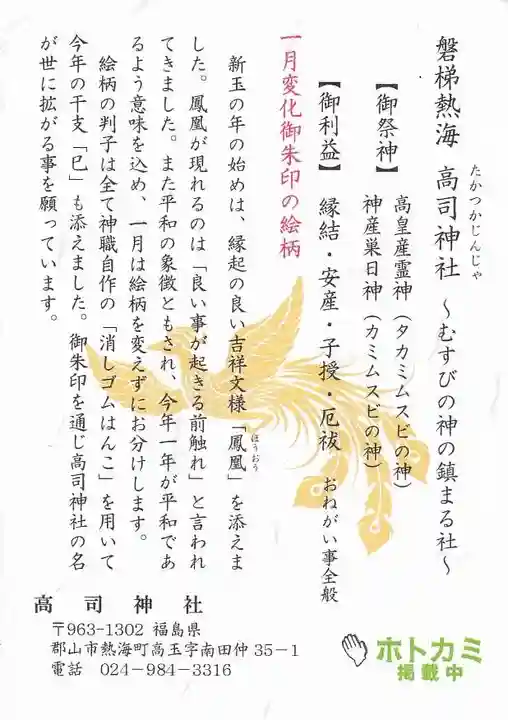 磐梯熱海 高司神社 ～むすびの神の鎮まる社～
たかつかじんじゃ
【御祭神】 高皇産霊神（タカミムスビの神）
神産巣日神（カミムスビの神）
【御利益】 縁結・安産・子授・厄祓 おねがい事全般
一月変化御朱印の絵柄
新玉の年の始めは、縁起の良い吉祥文様「鳳凰」を添えま
ほうおう
した。鳳凰が現れるのは「良い事が起きる前触れ」と言われ
てきました。また平和の象徴ともされ、今年一年が平和であ
るよう意味を込め、一月は絵柄を変えずにお分けします。
絵柄の判子は全て神職自作の「消しゴムはんこ」を用いて
今年の干支「巳」も添えました。御朱印を通じ高司神社の名
が世に拡がる事を願っています。
高司神社
〒963-1302 福島県
郡山市熱海町高玉字南田仲35－1
電話 024-984-3316
ホトカミ
掲載中